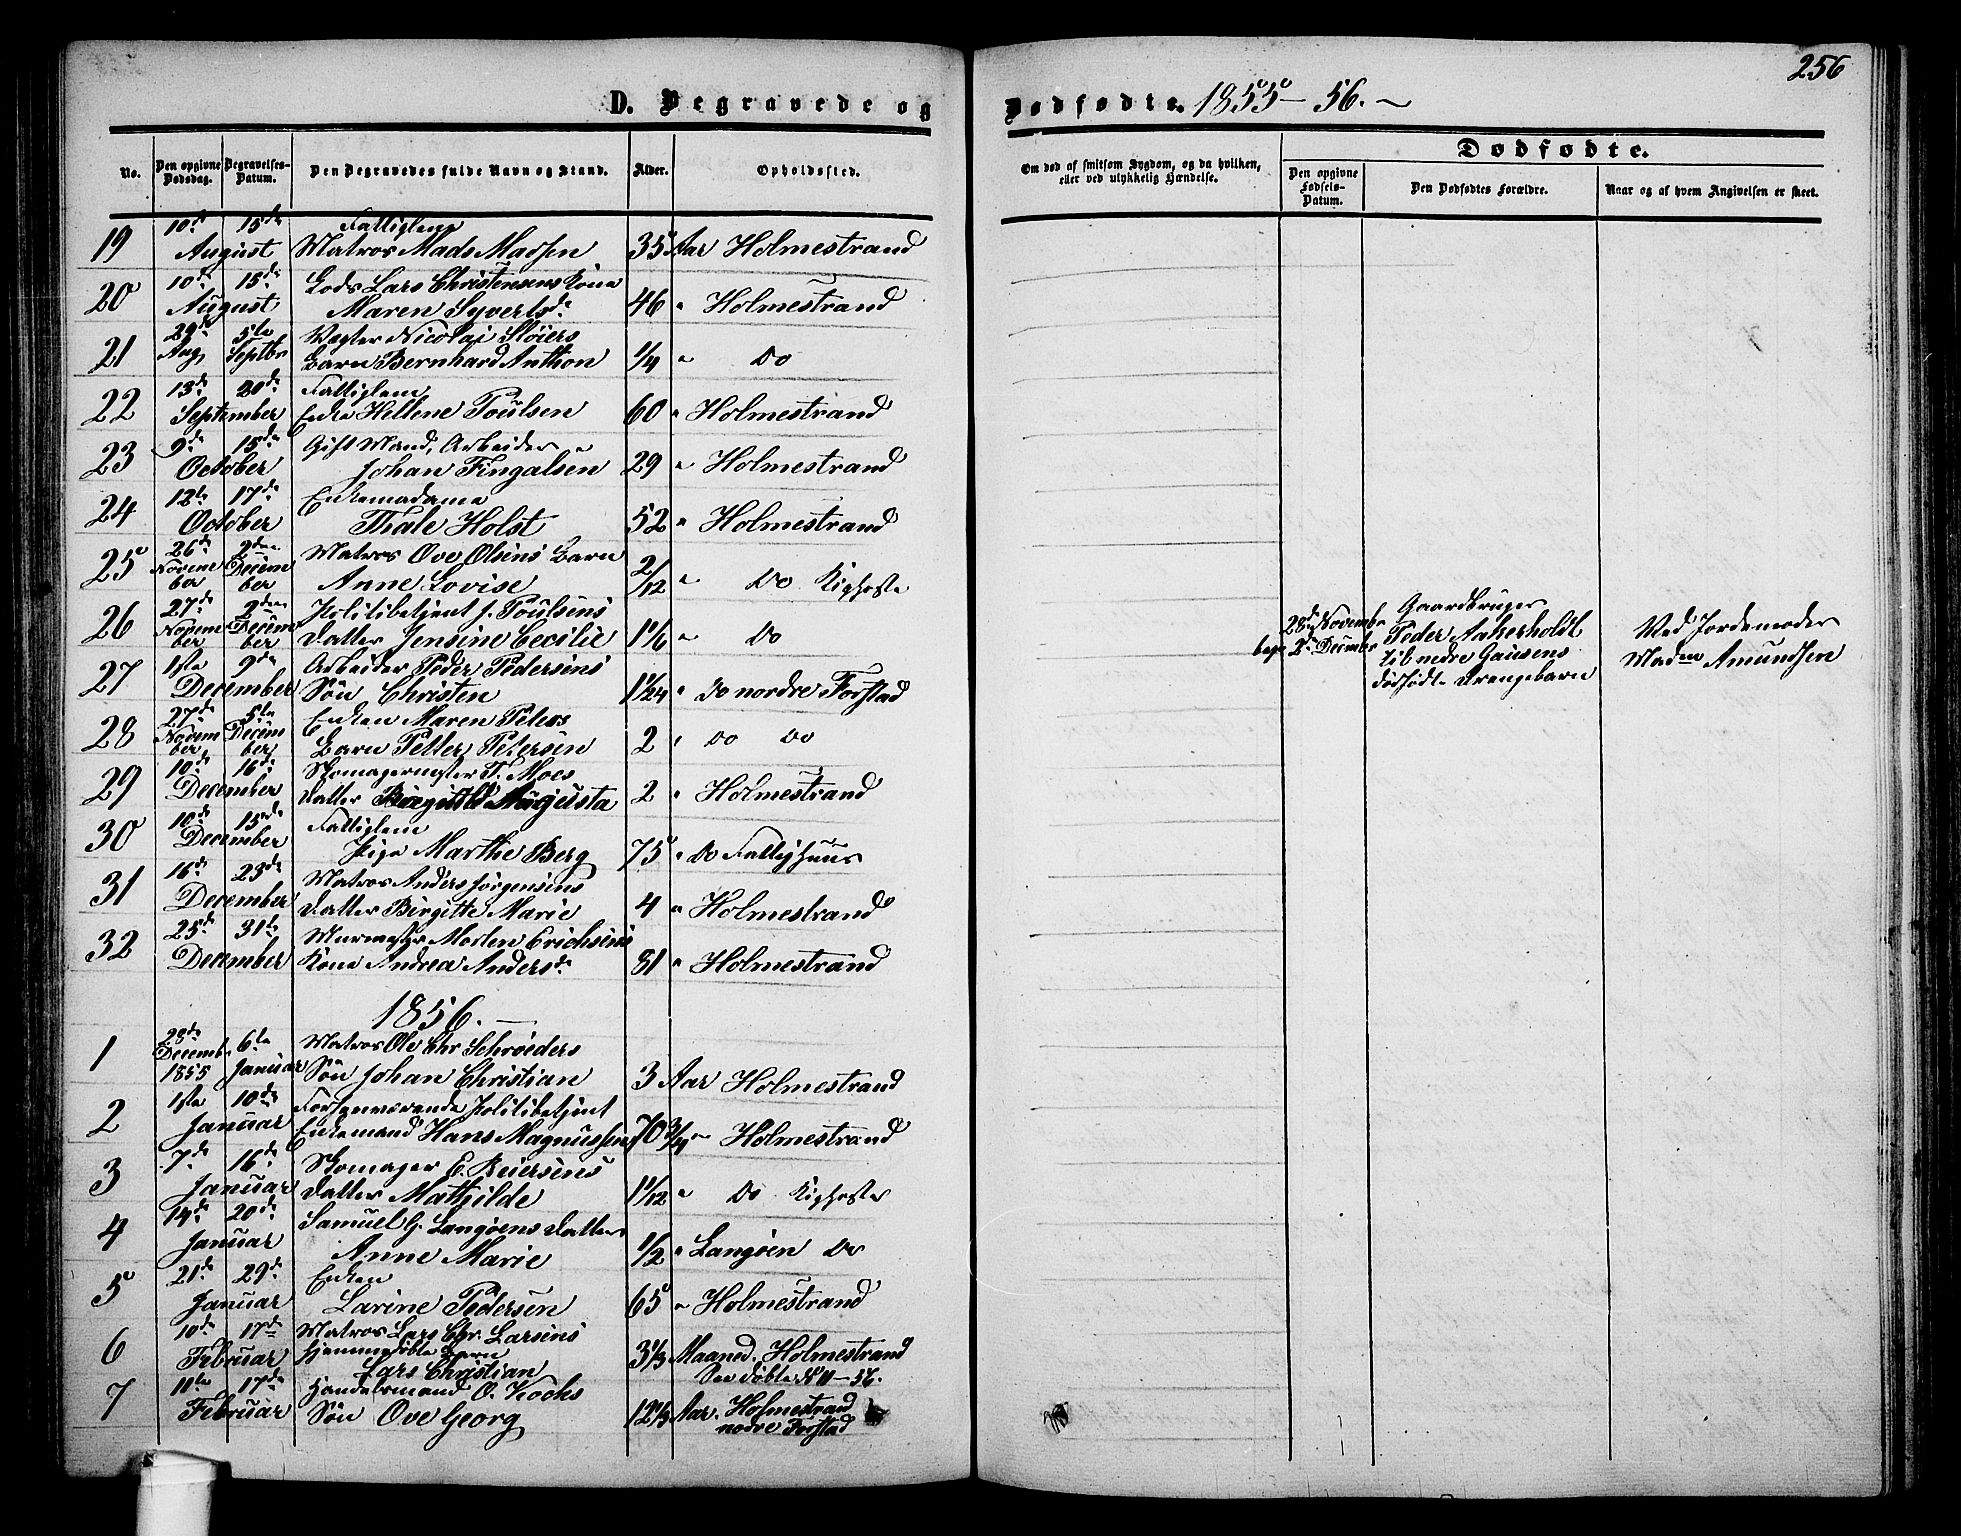 256
D. Begravede og Dødfødte. 1855-56.
No.
Den opgivne Dødsdag.
Begravelses-Datum.
Den Begravedes fulde Navn og Stand.
Alder.
Opholdssted.
Om død af smitsom Sygdom, og da hvilken, eller ved ulykkelig Hændelse.
Dødfødte.
Den opgivne Fødsels-Datum.
Den Dødfødtes Forældre.
Naar og af hvem Angivelsen er skeet.
19 10de 15de August Fattiglem Matros Mads Madsen 35 Aar Holmestrand
20 10de 15de August Lods Lars Christensens Kone Maren Syvertsd. 46 " Holmestrand
21 29de Aug 5te Septbr Vægter Nicolai Sløiers Barn Bernhard Anthon 1/4 " Do
22 13de 20de September Fattiglem Enke Hellene Poulsen 60 " Holmestrand
23 9de 15de October Gift Mand, Arbeider Johan Fingalsen 29 " Holmestrand
24 12te 17de October Enkemadame Thale Holst 52 " Holmestrand
25 26de November 2den December Matros Ove Olsens Barn Anne Lovise 2/12 " Do Kighoste
26 27de November 2den December Politibetjent J. Poulsens Datter Jensine Cecilie 1 1/6 " Do
27 1ste 9de December Arbeider Peder Pedersens Søn Christen 1 1/24 " Do nordre Forstad
28 27de November 5te December Enken Maren Peters Barn Petter Petersen 2 " Do Do
29 10de 16de December Skomagermester T. Moes Datter Birgitte Augusta 2 " Holmestrand
30 10de 15de December Fattiglem Pige Marthe Berg 75 " Do Fattighuus
31 16de 23de December Matros Anders Jørgensens Datter Birgitte Marie 4 " Holmestrand
32 25de 31te December Murmestr Morten Erichsens Kone Andrea Andersd. 81 " Holmestrand
28de Novembr
begr 2den Decembr
Gaardbruger
Peder Aakerholdt
til nedre Gausens
dødfødte Drengebarn
Ved Jordemoder
Madm Amundsen
1856.
1 28de Decemb. 1855 6te Januar Matros Ole Chr Schrøeders Søn Johan Christian 3 Aar Holmestrand
2 1ste 10de Januar Forhenværende Politibetjent Enkemand Hans Magnussen 70 3/4 " Holmestrand
3 7de 16de Januar Skomager C. Beiersens Datter Mathilde 1 1/12 " Do Kighoste
4 14de 20de Januar Samuel G. Langøens Datter Anne Marie 1/2 " Langøen Do
5 21de 29de Januar Enken Larine Pedersen 65 " Holmestrand
6 10de 17de Februar Matros Lars Chr. Larsens hjemmedøbte Barn Lars Christian 3 1/3 Maaned. Holmestrand See døbte No 11-56.
7 11te 17de Februar Handelsmand O. Kochs Søn Ove Georg 12 1/3 Aar. Holmestrand nodre Forstad